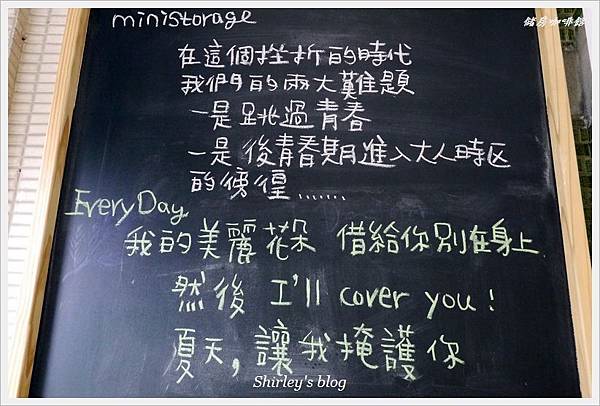 ministorage
儲房咖啡館
在這個挫折的時代
我們的兩大難題
一是跳過青春
一是後青春期進入大人時区
的徬徨......
EveryDay
我的美麗花朵 借給你別在身上
然後 I'll cover you!
夏天,讓我掩護你
Shirley's blog